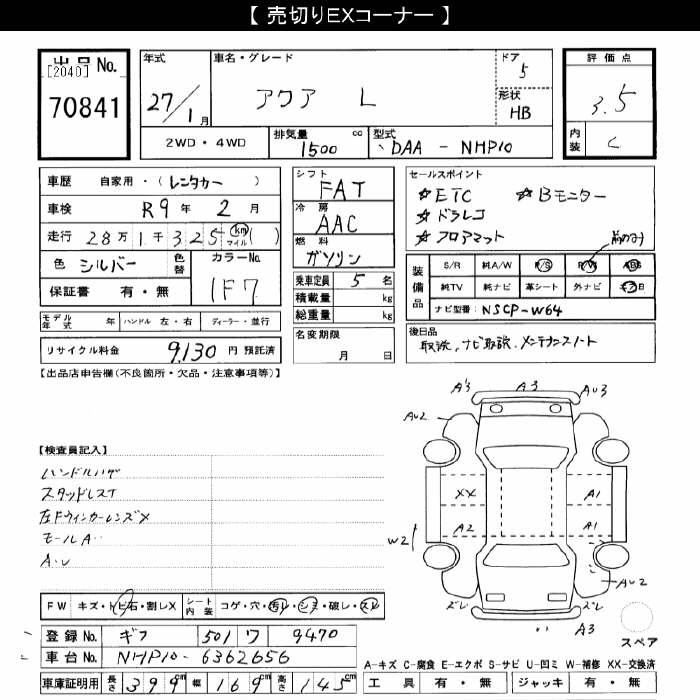 【 売切りEXコーナー 】
出品 No.
[2040]
70841
年式
27/1月
車名・グレード
アクア L
ドア
5
形状
HB
評価点
3.5
内装
C
2WD・4WD
排気量
1500 cc
型式
DAA - NHP10
車歴 自家用・( レンタカー )
車検 R9年 2月
走行 28万1千325 km マイル ( )
色 シルバー
色替
カラーNo.
1F7
保証書 有・無
モデル年式 年 ハンドル 左・右 ディーラー・並行
リサイクル料金 9,130 円 預託済
シフト
FAT
冷房
AAC
燃料
ガソリン
乗車定員 5 名
積載量 kg
総重量 kg
名変期限
月 日
セールスポイント
☆ETC ☆Bモニター
☆ドラレコ
☆フロアマット
前のみ
装備品
S/R 純A/W P/S P/W ABS
純TV 純ナビ 革シート 外ナビ
ナビ型番: NSCP-W64
後日品
取説, ナビ取説, メンテナンスノート
【出品店申告欄(不良箇所・欠品・注意事項等)】
【検査員記入】
スタッドレスT
左Fウィンカーレンズ×
モールA
A・U
A3 A3 AU3
AU2
XX A1
A2 A1
W2
AU2
ズレ ズレ
A3
スペア
FW キズ・トビ石・割レX シート内装 コゲ・穴・汚レ・シミ・破レ・スレ
登録 No. ギフ 501 ワ 9470
車台 No. NHP10-6362656
車庫証明用 長さ 399cm 幅 169cm 高さ 145cm
A-キズ C-腐食 E-エクボ S-サビ U-凹ミ W-補修 XX-交換済
工具 有・無 ジャッキ 有・無